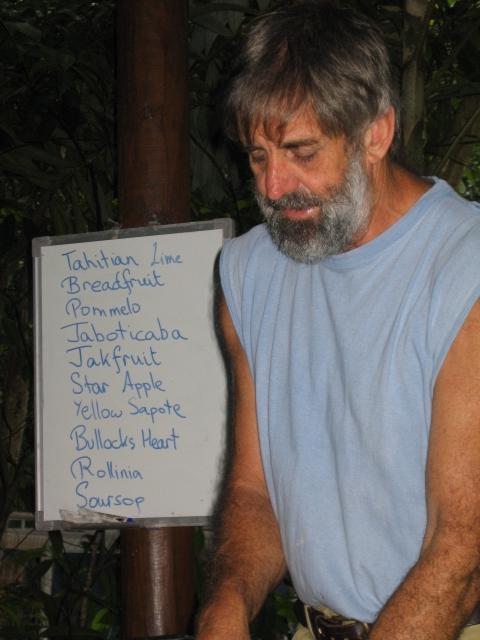 Tahitian Lime
Breadfruit
Pommelo
Jaboticaba
Jakfruit
Star Apple
Yellow Sapote
Bullocks Heart
Rollinia
Soursop